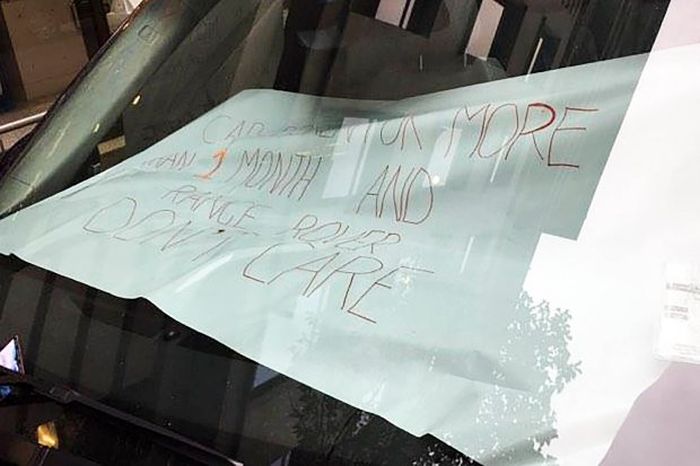 CAR FOR MORE
THAN 1 MONTH AND
RANGE ROVER
DON'T CARE